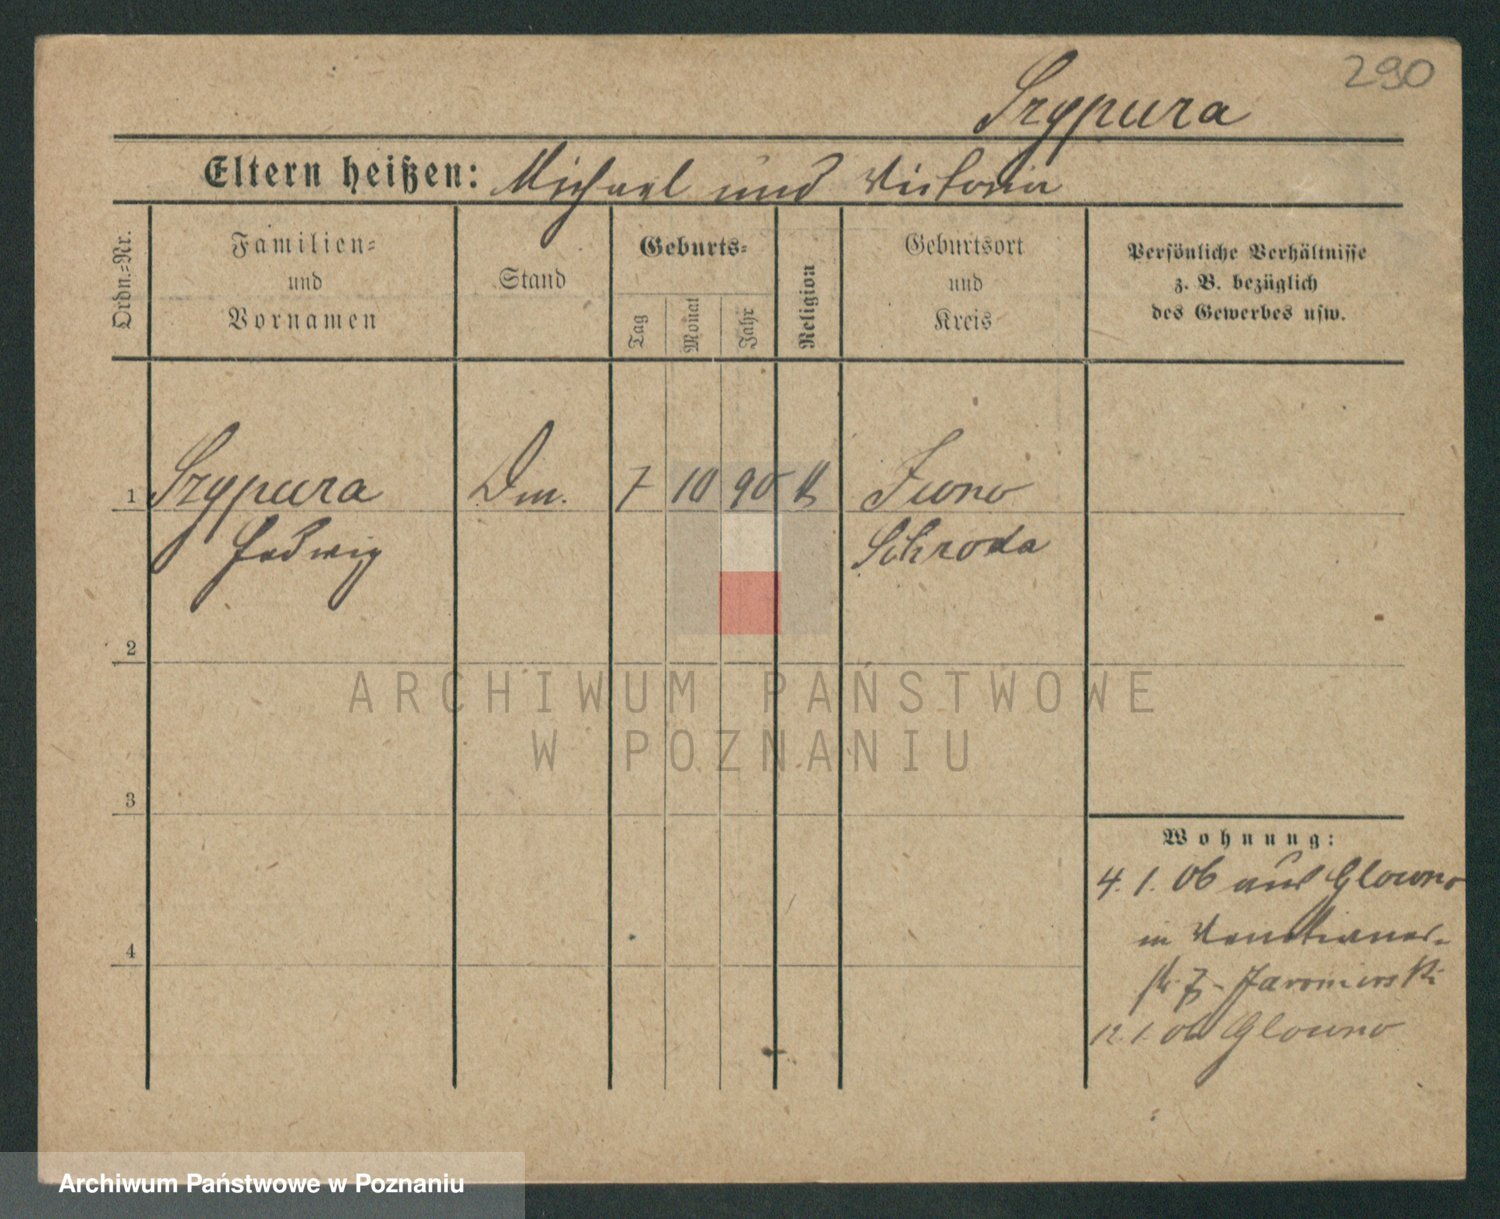 290
Szypura
Eltern heißen: Michael und Victoria
Ordn.-Nr.
Familien- und Vornamen
Stand
Geburts-
Tag
Monat
Jahr
Religion
Geburtsort und Kreis
Persönliche Verhältnisse
z. B. bezüglich
des Gewerbes usw.
1 Szypura Dm. 7 10 90 k
Hedwig Schroda
2
3
4
Wohnung:
4. 1. 06 aus Glowno
in Venetianer-
str 7 - Jaromierski
12. 1. 06 Glowno
ARCHIWUM PAŃSTWOWE
W POZNANIU
Archiwum Państwowe w Poznaniu